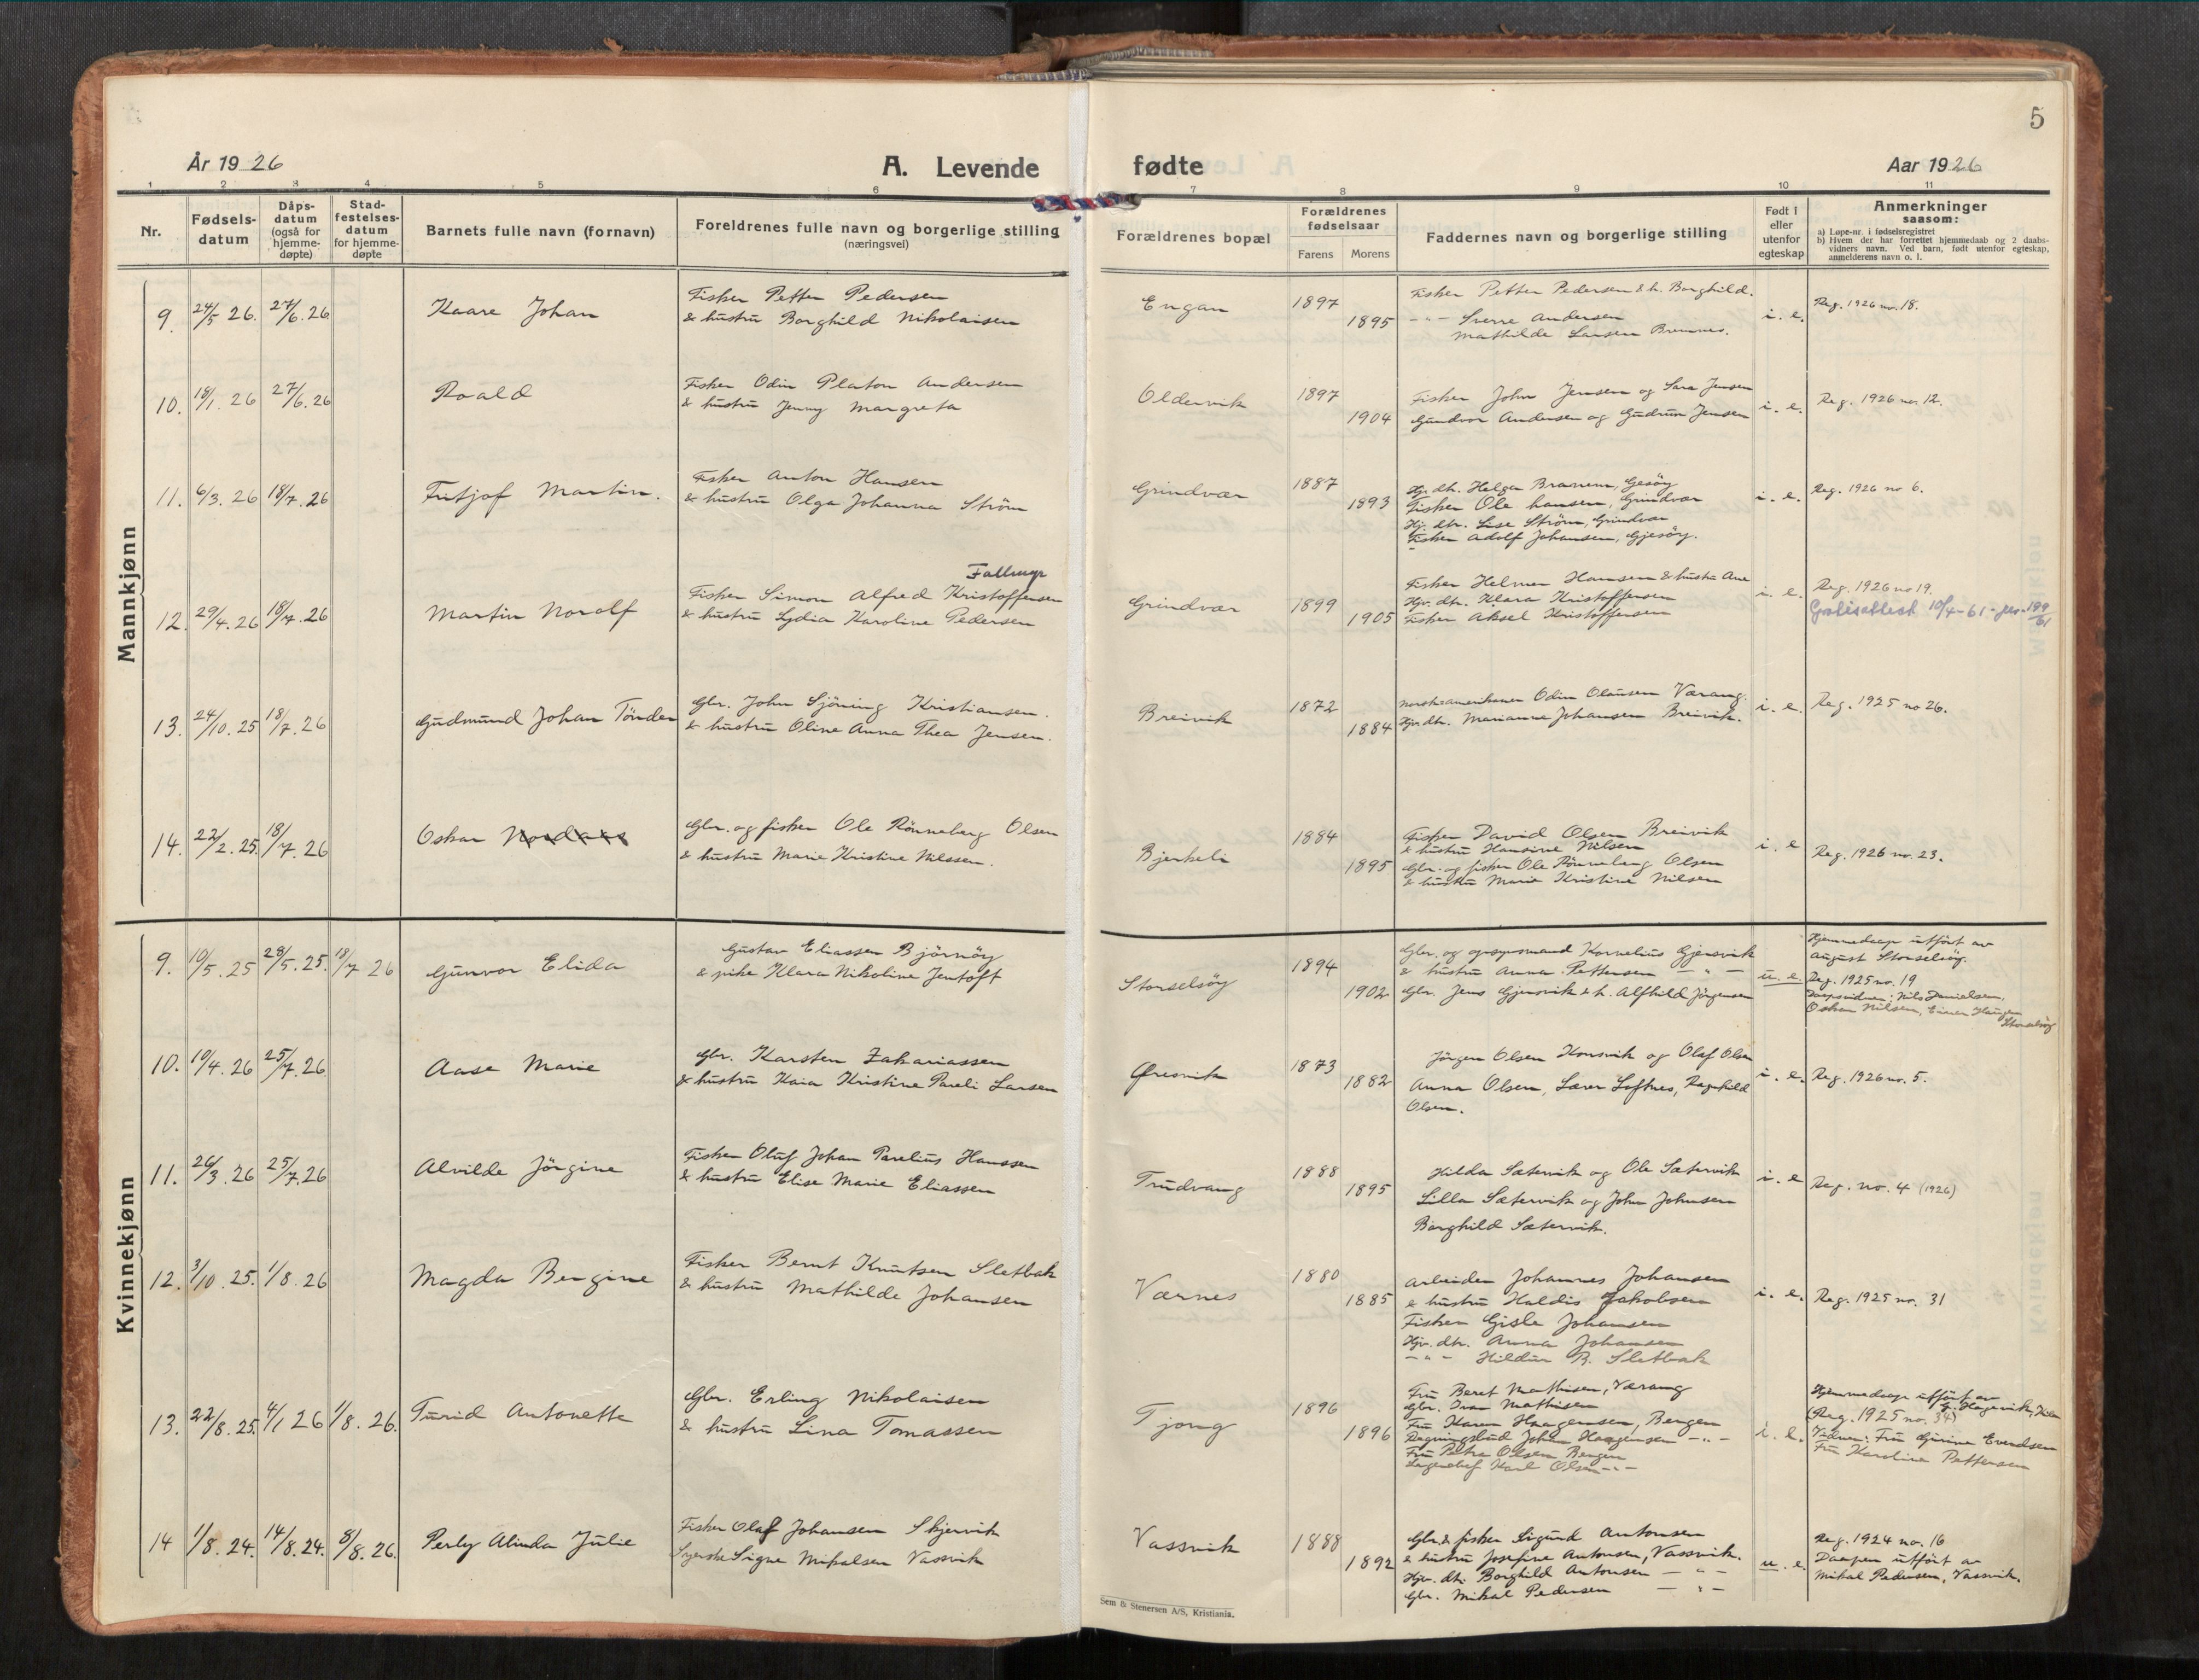 5
År 1926
A. Levende
fødte
Aar 1926
1 2 3 4 5 6 7 8 9 10 11
Nr.
Fødsels-
datum
Dåps-
datum
(også for
hjemme-
døpte)
Stad-
festelses-
datum
for hjemme-
døpte
Barnets fulle navn (fornavn)
Foreldrenes fulle navn og borgerlige stilling
(næringsvei)
Forældrenes bopæl
Forældrenes
fødselsaar
Farens Morens
Faddernes navn og borgerlige stilling
Født i
eller
utenfor
egteskap
Anmerkninger
saasom:
a) Løpe-nr. i fødselsregistret
b) Hvem der har forrettet hjemmedaab og 2 daabs-
vidners navn. Ved barn, født utenfor egteskap,
anmelderens navn o. l.
Mannkjønn
9. 24/5 26. 27/6. 26 Kaare Johan
Fisker Petter Pedersen
& hustru Borghild Nikolaisen
Engan 1897 1895
Fisker Petter Pedersen & h. Borghild.
-"- Sverre Andersen
Mathilde Larsen Bremnes.
i. e. Reg. 1926 no. 18.
10. 18/1. 26 27/6. 26 Roald
Fisker Odin Platon Andersen
& hustru Jenny Margreta
Oldervik 1897 1904
Fisker John Jensen og Sara Jensen
Gundvor Andersen og Gudrun Jensen
i. e. Reg. 1926 no. 12.
11. 6/3. 26 18/7. 26 Fritjof Martin.
Fisker Anton Hansen
& hustru Olga Johanna Ström
Grindvær 1887 1893
Hjv. dtr. Helga Gesöy
Fisker Ole Hansen, Grindvær
Hj. dtr. Lise Ström, Grindvær
Fisker Adolf Johansen, Gjesöy.
i. e. Reg. 1926 no 6.
12. 29/4. 26 18/7. 26 Martin Noralf
Fallmyr
Fisker Simon Alfred Kristoffersen
& hustru Lydia Karoline Pedersen
Grindvær 1899 1905
Fisker Helmer Hansen & hustru Ane
Hjv. dtr. Klara Kristoffersen
Fisker Aksel Kristoffersen
i. e. Reg. 1926 no 19.
Gratisattest 10/4-61- jnr. 199/61
13. 24/10. 25 18/7. 26 Gudmund Johan Tönder
Gbr. John Sjöning Kristiansen.
& hustru Oline Anna Thea Jensen.
Breivik 1872 1884
Norskamerikaner Odin Olausen Værang.
Hjv. dtr. Marianne Johansen Breivik.
i. e. Reg. 1925 no 26.
14. 22/2. 25. 18/7. 26 Oskar
Gbr. og fisker Ole Rönneberg Olsen
& hustru Marie Kristine Nilssen.
Bjerkeli 1884 1895
Fisker David Olsen Breivik
& hustru Hansine Nilsen
Gbr. og fisker Ole Rönneberg Olsen
& hustru Marie Kristine Nilsen
i. e Reg. 1926 no. 23.
Kvinnekjønn
9. 10/5. 25 28/5. 25. 18/7 26 Gunvor Elida
Gustav Eliassen Björnöy
& pike Klara Nikoline Jentoft
Storselsöy 1894 1902
Gbr. og opsynsmand Kornelius Gjersvik
& hustru Anna Pettersen -"-
Gbr. Jens Gjersvik & h. Alfhild Jörgensen
u. e.
Hjemmedaap utfört av
August Storselsöy.
Reg. 1925 no. 19
Daapsvidner: Nils Danielsen,
Oskar Nilsen, Einar Haugen
Storselsöy
10. 10/4. 26 25/7. 26 Aase Marie
Gbr. Karsten Zakariassen
& hustru Kaia Kristine Pareli Larsen
Øresvik 1873 1882
Jörgen Olsen Konsvik og Olaf Olsen
Anna Olsen, Laver Loftnes, Ragnhild
Olsen.
i. e. Reg. 1926 no. 5.
11. 26/3. 26 25/7. 26 Alvilde Jörgine
Fisker Oluf Johan Parelius Hanssen
& hustru Elise Marie Eliassen
Trudvang 1888 1895
Hilda Sætervik og Ole Sætervik
Lilla Sætervik og John Johnsen
Borghild Sætervik.
i. e Reg. no. 4 (1926)
12. 3/10. 25. 1/8. 26 Magda Bergine
Fisker Bernt Knutsen Sletbak
& hustru Mathilde Johansen
Værnes 1880 1885
Arbeider Johannes Johansen
& hustru Haldis Jakobsen
Fisker Gisle Johansen
Hjv. dtr. Anna Johansen
-"- Hildur B. Sletbak
i. e. Reg. 1925 no. 31
13. 22/8. 25. 4/1 26 1/8. 26. Turid Antonette
Gbr. Erling Nikolaisen
& hustru Lina Tomassen
Tjong 1896 1896
Fru Beret Mathisen, Værang
Gbr. Ivar Mathisen
Fru Karen Haagensen, Bergen
John Haagensen -"-
Fru Petra Olsen Bergen
Lagerchef Karl Olsen -"-
i. e.
Hjemmedaap utfört av
Hagervik,
(Reg. 1925 no. 34)
Vidner: Fru Gurine Evendsen
Fru Karoline Pettersen
14 1/8. 24. 14/8. 24. 8/8. 26. Perly Alinda Julie
Fisker Olaf Johansen Skjervik
Syerske Signe Mikalsen Vassvik
Vassvik 1888 1892
Gbr. & fisker Sigurd Antonsen
& hustru Josefine Antonsen, Vassvik.
Hjv. dtr. Borghild Antonsen -"-
Gbr. Mikal Pedersen -"-
u. e.
Reg. 1924 no. 16
Daapen utfört av
Mikal Pedersen, Vassvik.
Sem & Stenersen A/S, Kristiania.